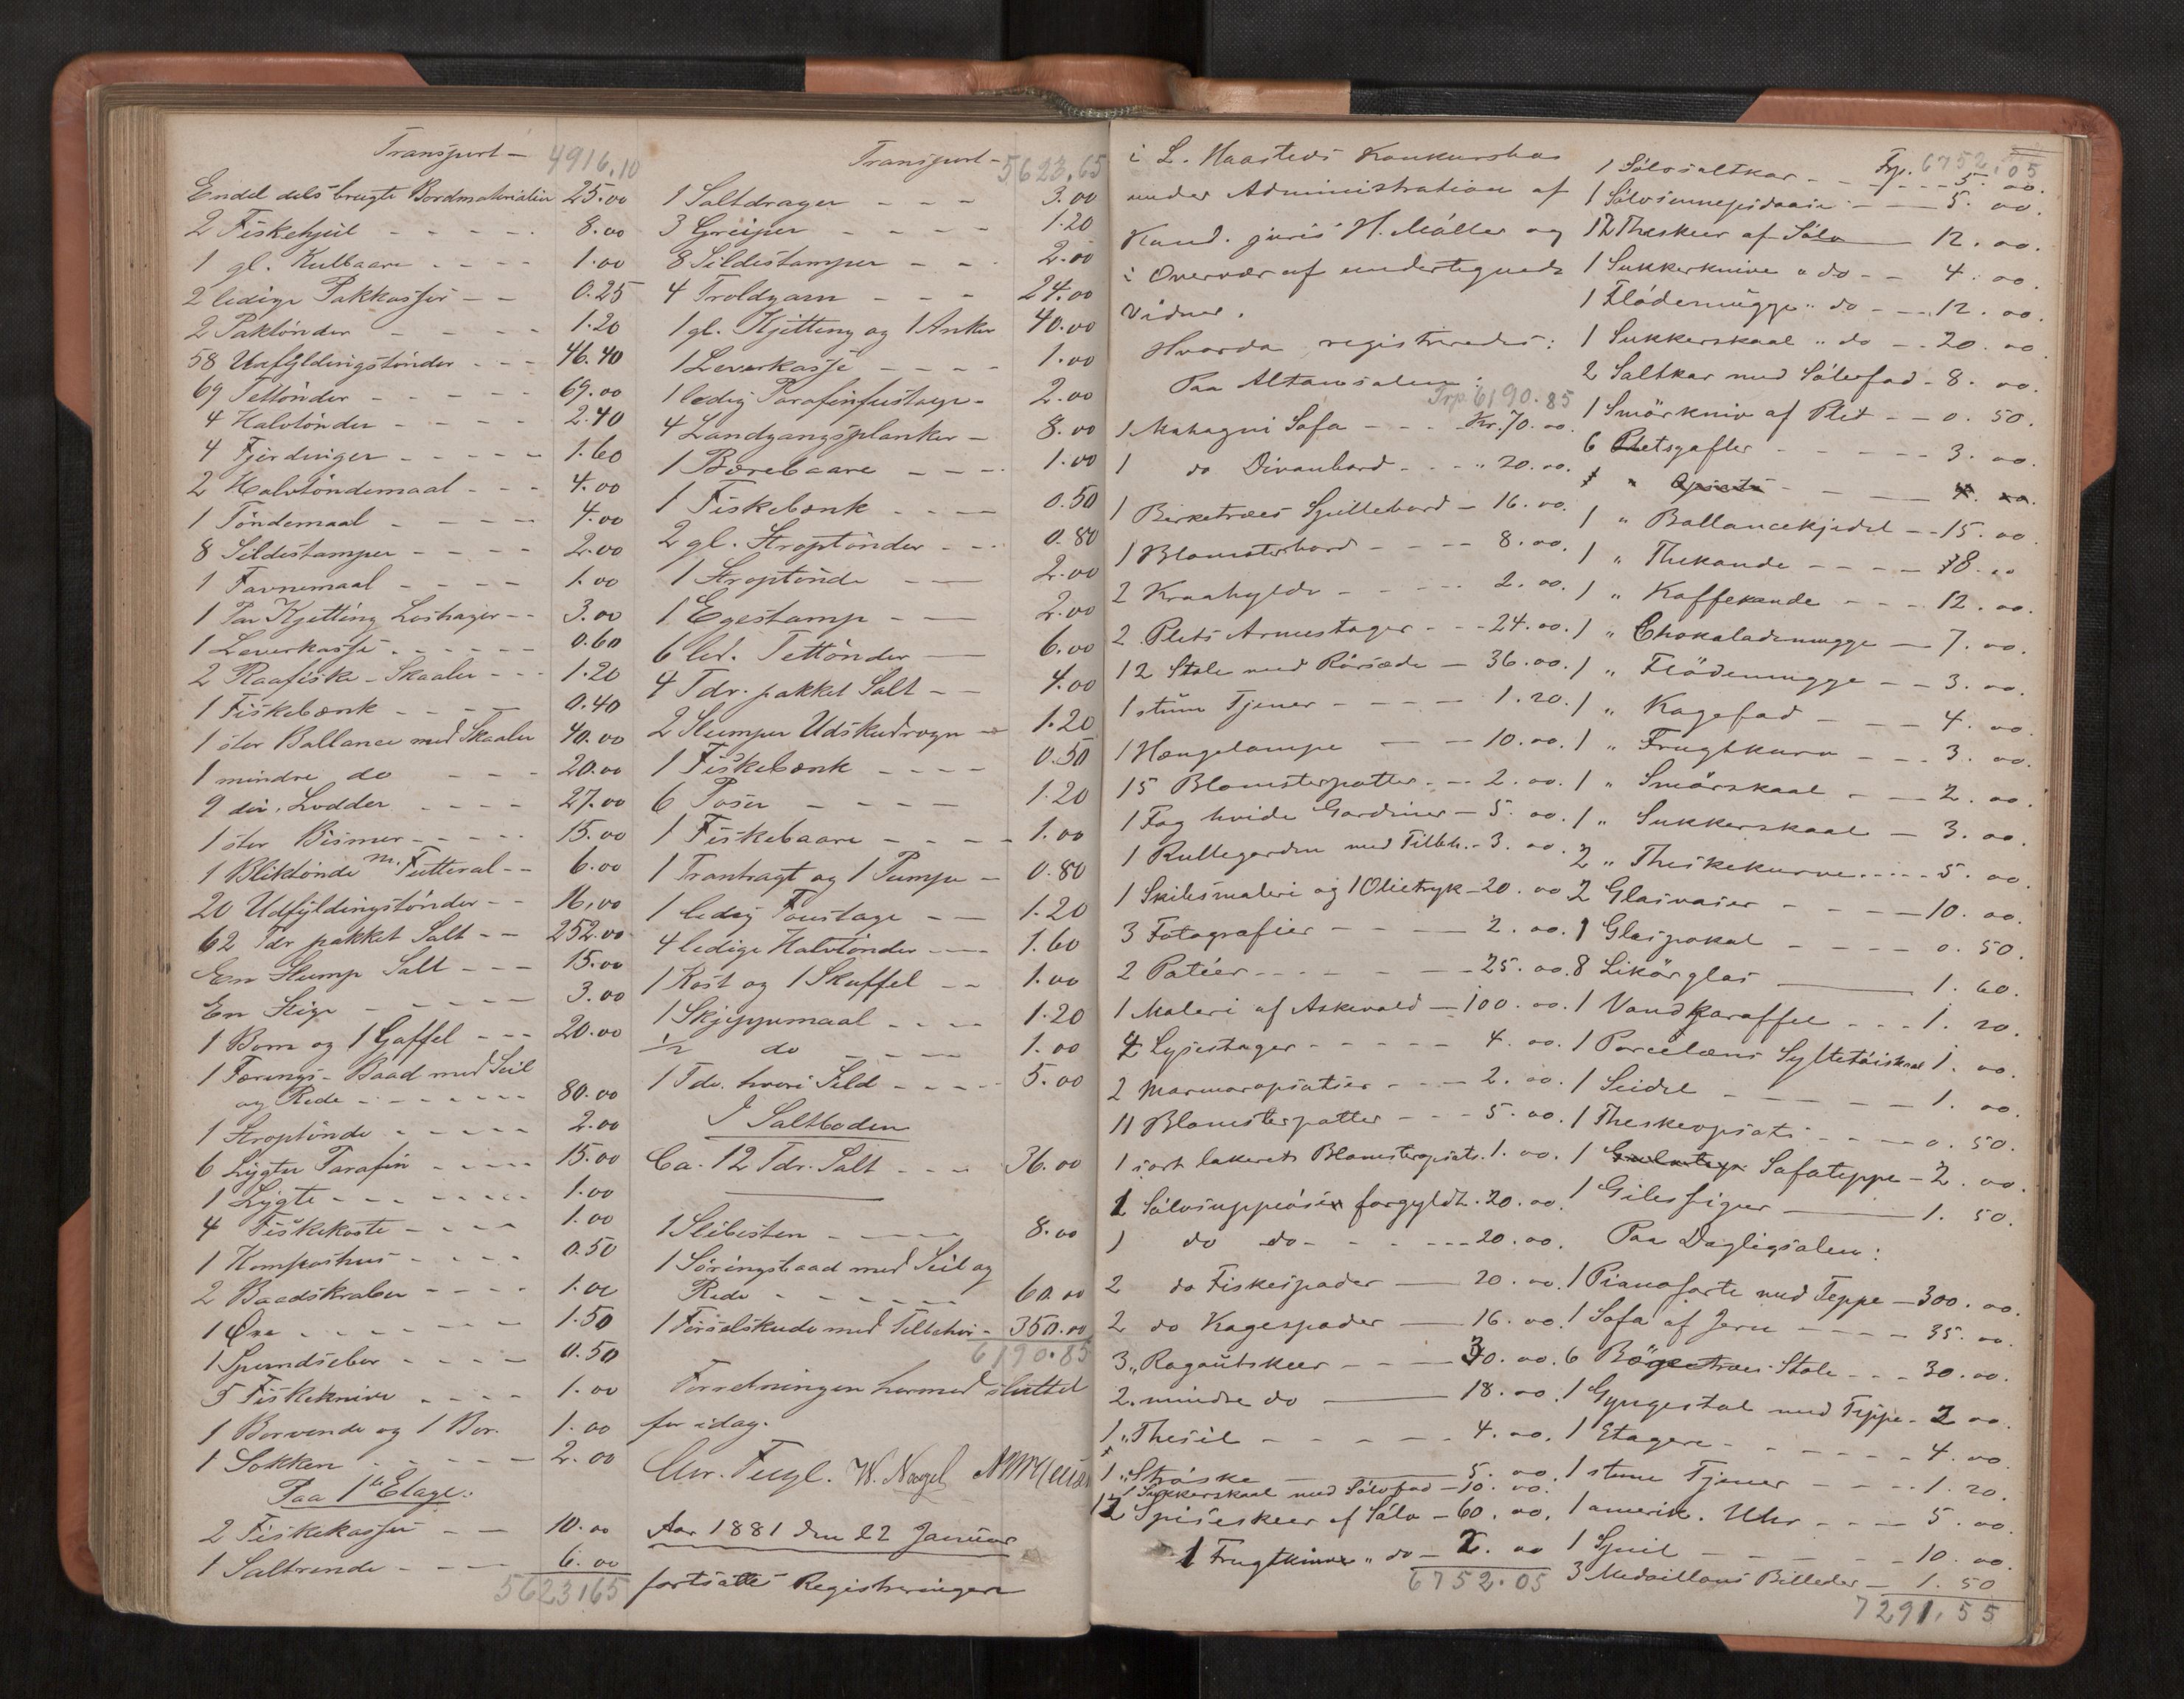 Transport - 4916.10
Endel dels brugte Bordmaterialier 25.00
2 Fiskehjul - - - - - 8.00
1 gl. Kulbaare - - - - 1.00
2 ledige Pakkasser - - 0.25
2 Paktönder - - - - - 1.20
58 Udfyldingstönder - - - 46.40
69 Tettönder - - - - - 69.00
4 Halvtönder - - - - - 2.40
4 Fjerdinger - - - - - 1.60
2 Halvtöndemaal - - - 4.00
1 Töndemaal - - - - 4.00
8 Sildestamper - - - - 2.00
1 Favnemaal - - - - 1.00
1 Par Kjetting Loshager - - 3.00
1 Leverkasse - - - - - 0.60
2 Raafiske-Skaaler - - - 1.20
1 Fiskebænk - - - - 0.40
1 stor Ballance med Skaaler 40.00
1 mindre do - - - 20.00
9 div. Lodder - - - - 27.00
1 stor Bismer - - - - 15.00
1 Bliktönde m. Futteral - - 6.00
20 Udfyldingstönder - - 16.00
62 Tdr pakket Salt - - 252.00
En Slump Salt - - - 15.00
En Stige - - - - - 3.00
1 Bom og 1 Gaffel - - - 20.00
1 Færings-Baad med Seil
og Rede - - - - - - 80.00
1 Stroptönde - - - - - 2.00
6 Ligter Parafin - - - - 15.00
1 Lygte - - - - - - 1.00
4 Fiskekoste - - - - 1.00
1 Kompashus - - - - 0.50
2 Baadskraber - - - - 1.00
1 Öxe - - - - - - 1.50
1 Spundsebor - - - - 0.50
5 Fiskeknive - - - - 1.00
1 Borvende og 1 Bor. 1.00
1 Sokken - - - - - 2.00
Paa 1ste Etage:
2 Fiskekasser - - 10.00
1 Saltrende - - - - 6.00
5623.65
Transport - 5623.65
1 Saltdrager - - - 3.00
3 Greiper - - - - 1.20
8 Sildestamper - - - 2.00
4 Troldgarn - - - 24.00
1 gl. Kjetting og 1 Anker 40.00
1 Leverkasse - - - - 1.00
1 ledig Parafinfustage - 2.00
4 Landgangsplanker - 8.00
1 Bærebaare - - - - 1.00
1 Fiskebænk - - - - 0.50
2 gl. Stroptönder - - - 0.80
1 Stroptönde - - 2.00
1 Egestamp - - - 2.00
6 led. Tettönder - 6.00
4 Tdr. pakket Salt - - 4.00
2 Slumper Udskudrogn - 1.20
1 Fiskebænk - - - - 0.50
6 Poser - - - - 1.20
1 Fiskebaare - - - - 1.00
1 Trantragt og 1 Pumpe - 0.80
1 ledig Foustage - - 1.20
4 ledige Halvtönder - - - 1.60
1 Rost og 1 Skuffel - - 1.00
1 Skjeppemaal - - - - 1.20
1/2 do - - - - 1.00
1 Tde. hvori Sild - - - - 5.00
I Saltboden
Ca. 12 Tdr. Salt - - - 36.00
1 Slibesten - - - - 8.00
1 Söringsbaad med Seil og
Rede - - - - - - 60.00
1 Förselskude med Tilbehör - 350.00
6190.85
Forretningen hermed sluttet
for idag.
Chr. Fugl. W. Nagel
Aar 1881 den 22 Januar
fortsattes Registreringen
i L. Haasteds Konkursbo
under Administration af
Kand. juris H. Möller og
i Overvær af undertegnede
Vidner.
Hvorda registreredes:
Paa Altansalen:
Trp. 6190.85
1 Mahagni Sofa - - - Kr. 70.00.
1 do Divanbord - - - " 20.00.
1 Birketræes Spillebord - 16.00.
1 Blomsterbord - - - - 8.00.
2 Kraahylde - - - - 2.00.
2 Plets Armestager - - - 24.00.
12 Stole med Rörsæde - 36.00.
1 stum Tjener - - - - 1.20.
1 Hængelampe - - - 10.00.
15 Blomsterpotter - - - 2.00.
1 Fag hvide Gardiner - 5.00.
1 Rullegardin med Tilbh. - 3.00.
1 Skilsmaleri og 1 Olietryk - 20.00
3 Fotografier - - - - 2.00.
2 Patéer - - - - - - 25.00.
1 Maleri af Askevold - 100.00.
4 Lysestager - - - - - 4.00.
2 Marmoropsatser - - - - 2.00.
11 Blomsterpotter - - - 5.00.
1 sort lakeret Blomsteropsats. 1.00.
1 Sölvsuppeöse forgyldt. 20.00.
1 do do - - - - - 20.00.
2 do Fiskespader - 20.00.
2 do Kagespader - 16.00.
3 " Ragoutskeer - - - 30.00.
2. mindre do - 18.00.
1 " Thesil - - - - - 4.00.
1 " Ströske - 5.00.
1 Sukkerskaal med Sölvfad - 10.00.
12 Spiseskeer af Sölv - 60.00.
1 Frugtkniv " do - 2.00
6752.05
Trp. 6752.05
1 Sölvsaltkar - - - - - 5.00.
1 Sölvsennepsdaase - - - 5.00.
12 Theskeer af Sölv - 12.00.
1 Sukkerknive " do - - 4.00.
1 Flödemugge " do - - - 12.00.
1 Sukkerskaal " do - - 20.00.
2 Saltkar med Sölvfad - 8.00.
1 Smörkniv af Plet - - 0.50.
6 Pletsgafler - - - - - 3.00.
1 " Opsats - - - - 4.00.
1 " Ballancekjedel - - 15.00.
1 " Thekande - - - - 8.00
1 " Kaffekande - - - 12.00.
1 " Chokolademugge - 7.00.
1 " Flödemugge - - 3.00.
1 " Kagefad - - - 4.00.
1 " Frugtkurv - - - 3.00.
1 " Smörskaal - - 2.00.
1 " Sukkerskaal - 3.00.
2 " Theskekurve - - - - 5.00.
2 Glasvaser - - - - 10.00.
1 Glaspokal - - - - 0.50.
8 Likörglas - 1.60.
1 Vandkaraffel - - - 1.20.
1 Porcelæns Syltetöiskaal 1.00.
1 Seidel - - - - - 1.00.
1 Theskeopsats - - - - 0.50.
1 Sofateppe - 2.00.
1 Gibsfigur - 1.50.
Paa Dagligsalen:
1 Pianoforte med Teppe - 300.00.
1 Sofa af Jern - - - - 35.00.
6 Bögetræes-Stole - - - 30.00.
1 Gyngestol med Teppe - 2.00.
1 Etagere - - - - - - 4.00.
1 stum Tjener - - - - 1.20.
1 amerik. Uhr - - - 5.00.
1 Speil - - - - - 10.00.
3 Medaillons Billeder - 1.50
7291.55